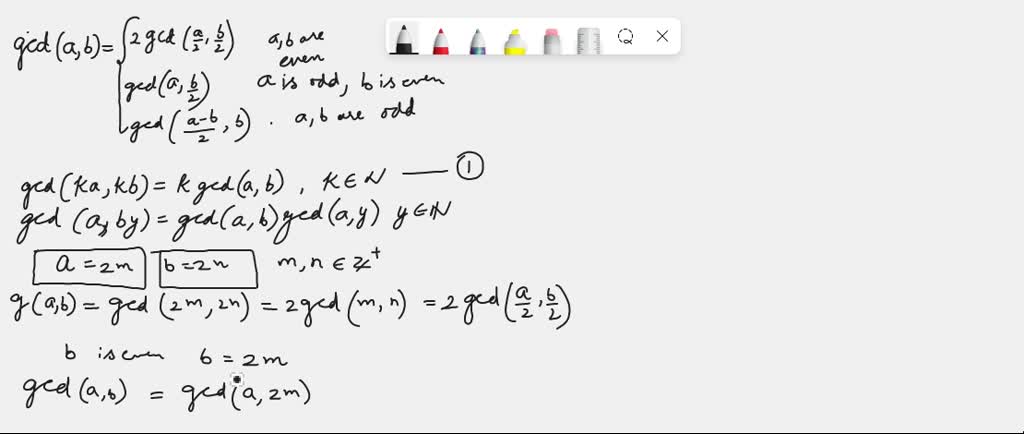 gcd(a,b) = { 2 gcd(a/2, b/2) a,b are even
gcd(a, b/2) a is odd, b is even
gcd((a-b)/2, b) . a,b are odd
gcd(ka, kb) = k gcd(a,b), k∈N —— ①
gcd(a, by) = gcd(a,b) gcd(a,y) y∈N
a = 2m b = 2n m,n ∈ Z⁺
g(a,b) = gcd(2m, 2n) = 2 gcd(m, n) = 2 gcd(a/2, b/2)
b is even b = 2m
gcd(a,b) = gcd(a, 2m)